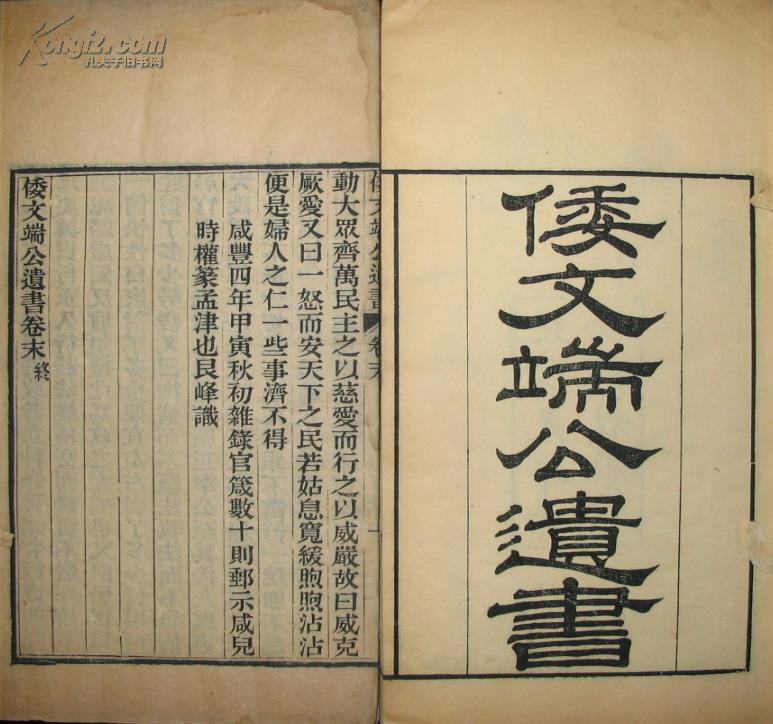 倭文端公遺書
倭文端公遺書 卷末
動大眾齊萬民主之以慈愛而行之以威嚴故曰威克
厥愛又曰一怒而安天下之民若姑息寬緩煦煦沾沾
便是婦人之仁一些事濟不得
咸豐四年甲寅秋初雜錄官箴數十則郵示咸兒
時權篆孟津也艮峰識
倭文端公遺書卷末終
Kongfz.com
孔夫子旧书网